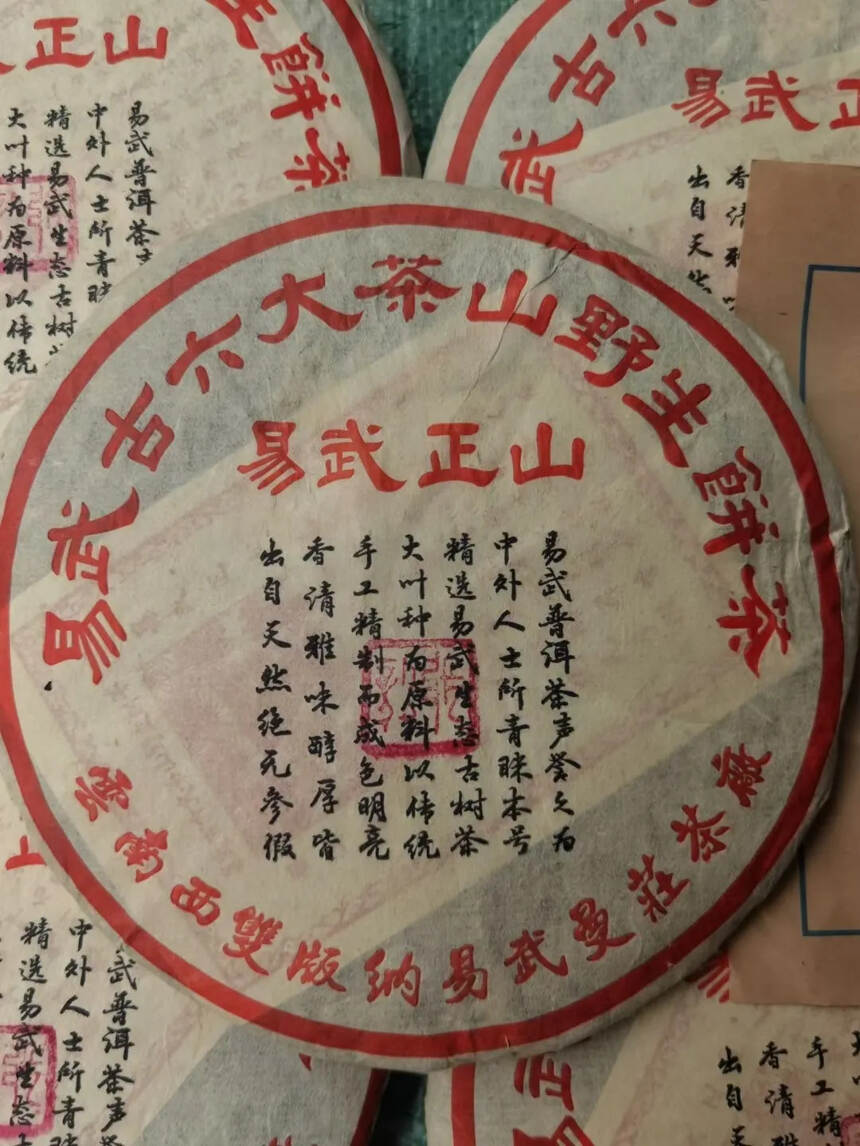 易武古六大茶山野生餅茶
易武正山
易武普洱茶声誉久为
中外人士所青睐本号
精选易武生态古树茶
大叶种为原料以传统
手工精制而成色明亮
香清雅味醇厚皆
出自天然绝无参假
雲南西雙版纳易武曼莊茶廠
生餅茶
正山
易武普洱茶声
中外人士所青睐
精选易武生态古树
大叶种为原料以传统
武古六
易武正
香清雅
出自天然
武普洱茶声
中外人士所青
精选易武生态古
手工精制
香清雅
出自天